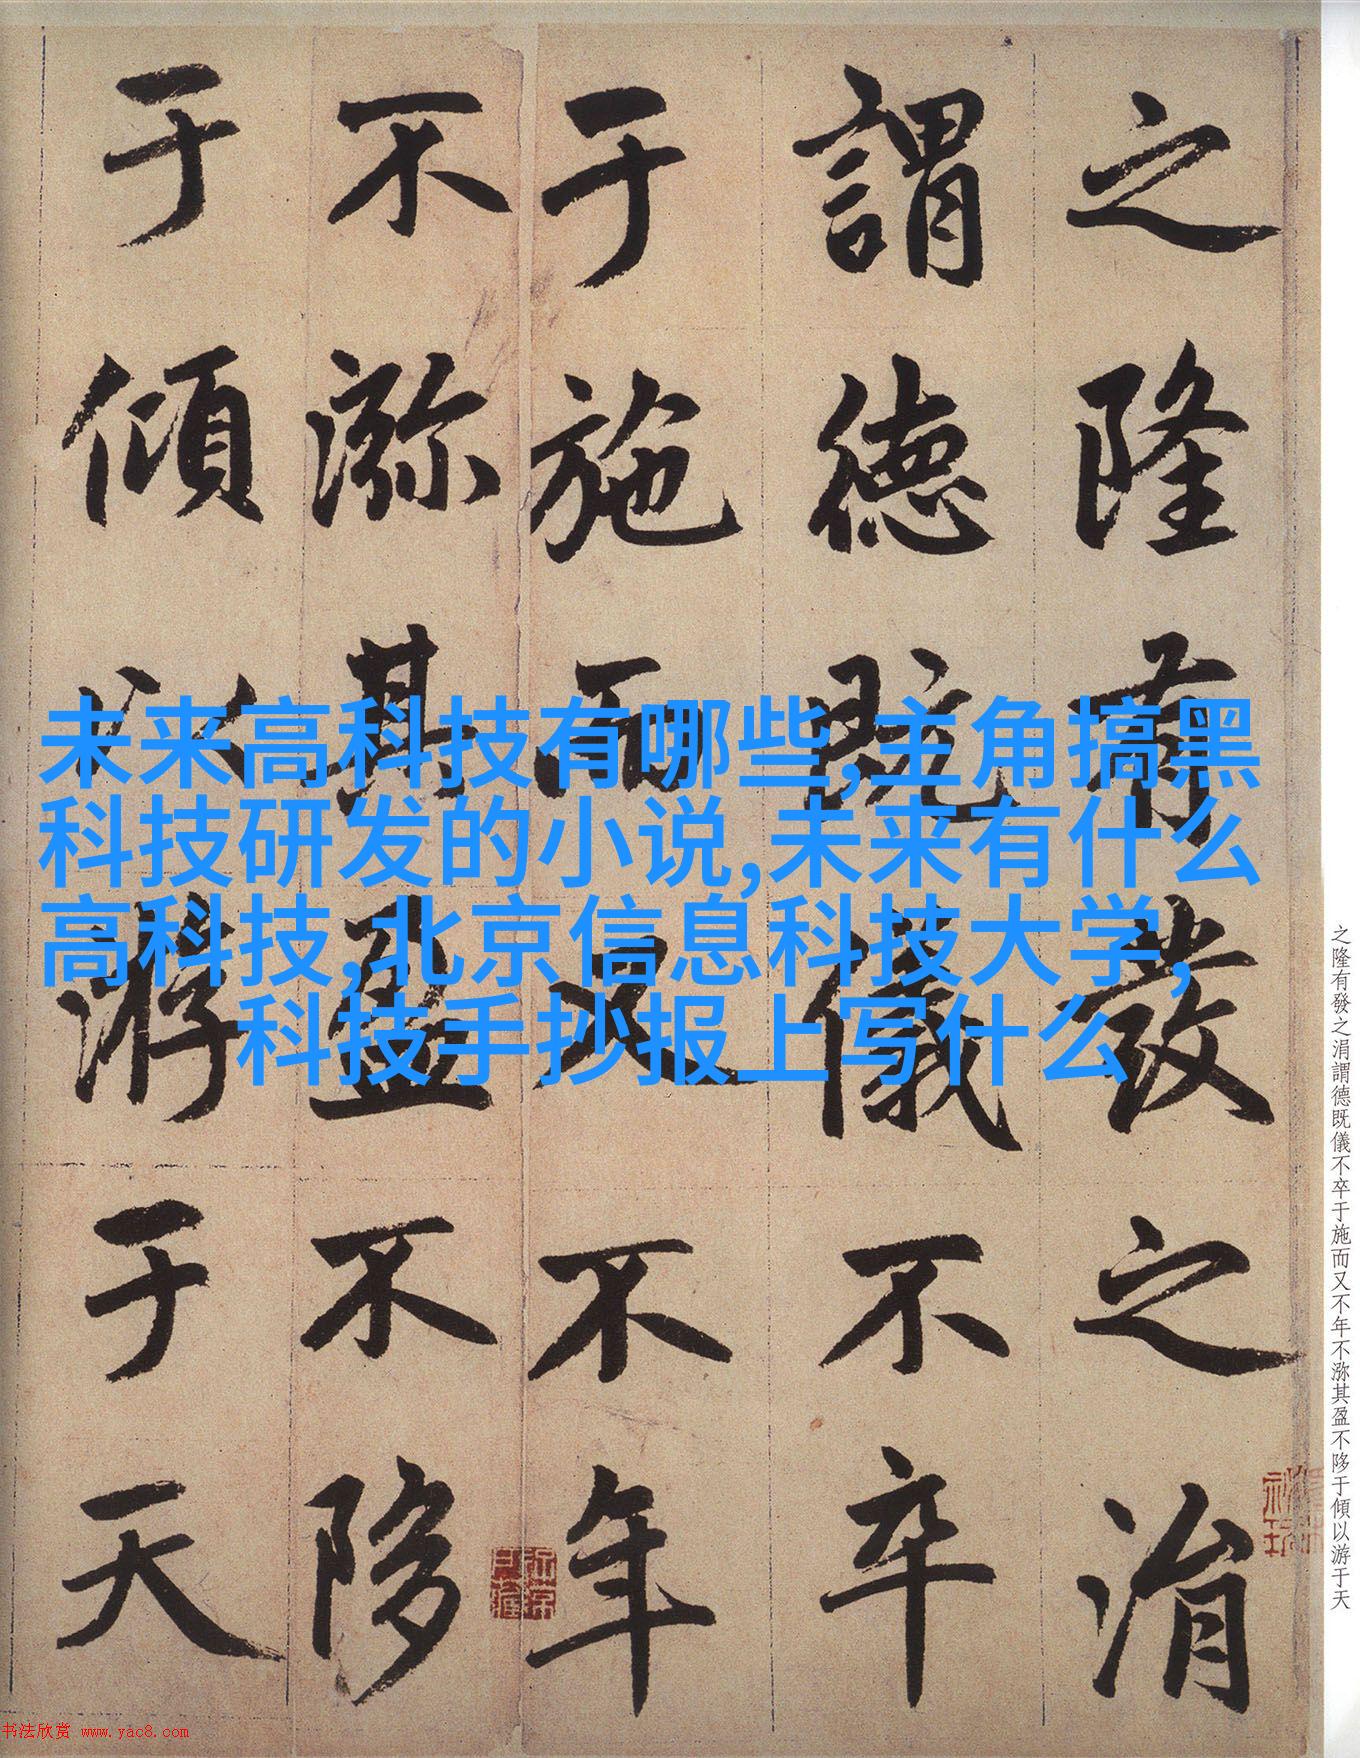 之隆有發之涓
謂德既儀不卒
于施而又不年
不㳽其盈不陊
于傾以游于天
未来高科技有哪些,主角搞黑
科技研发的小说,未来有什么
高科技,北京信息科技大学,
科技手抄报上写什么
之隆有發之涓謂德既儀不卒于施而又不年不㳽其盈不陊于傾以游于天
书法欣赏 www.yac8.com